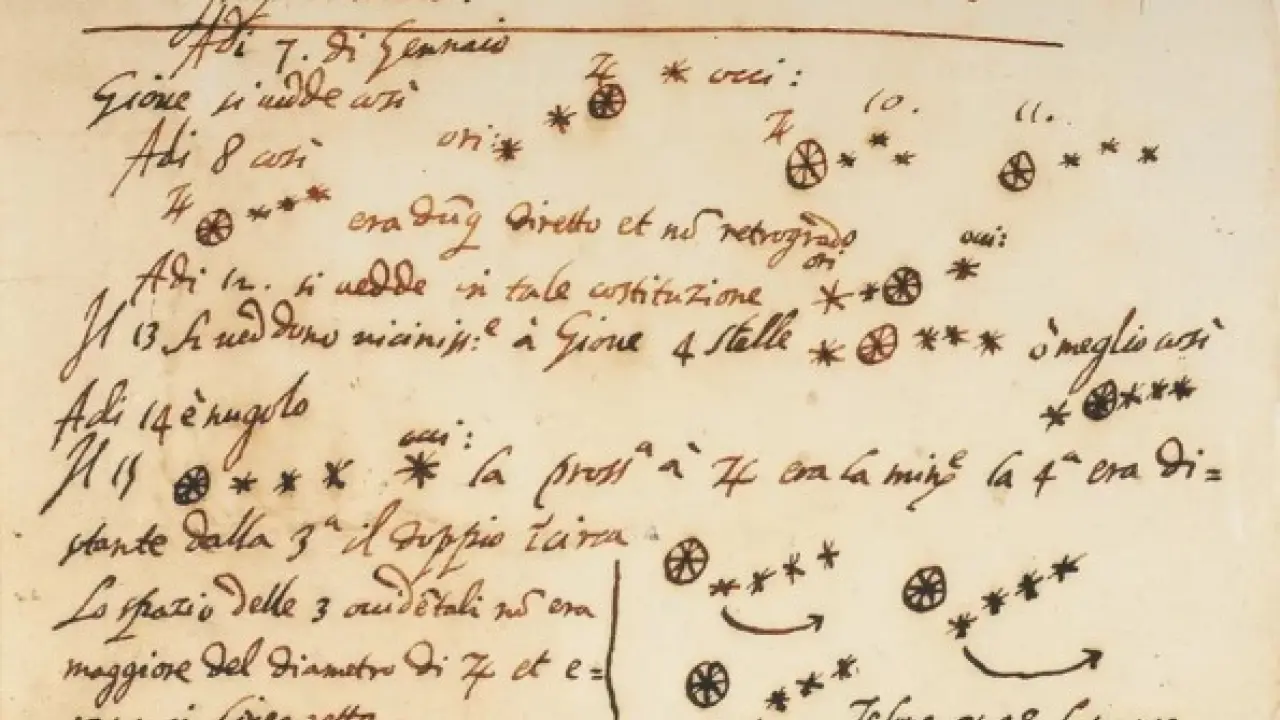 Adi 7. di Gennaio
Gioue si uedde così
♃ occi:
ori:
Adi 8 così
♃ 10. 11.
♃ era dūq diretto et nō retrogrado
Adi 12. si uedde in tale costituzione
ori occi:
Il 13 si ueddono uiciniss:e à Gioue 4 stelle ò meglio così
Adi 14 è nugolo
Il 15 occi: la prossa à ♃ era la mine la 4a era di=
stante dalla 3a il doppio ī circa
Lo spazio delle 3 occidētali nō era
maggiore del diametro di ♃ et e=
linea retta